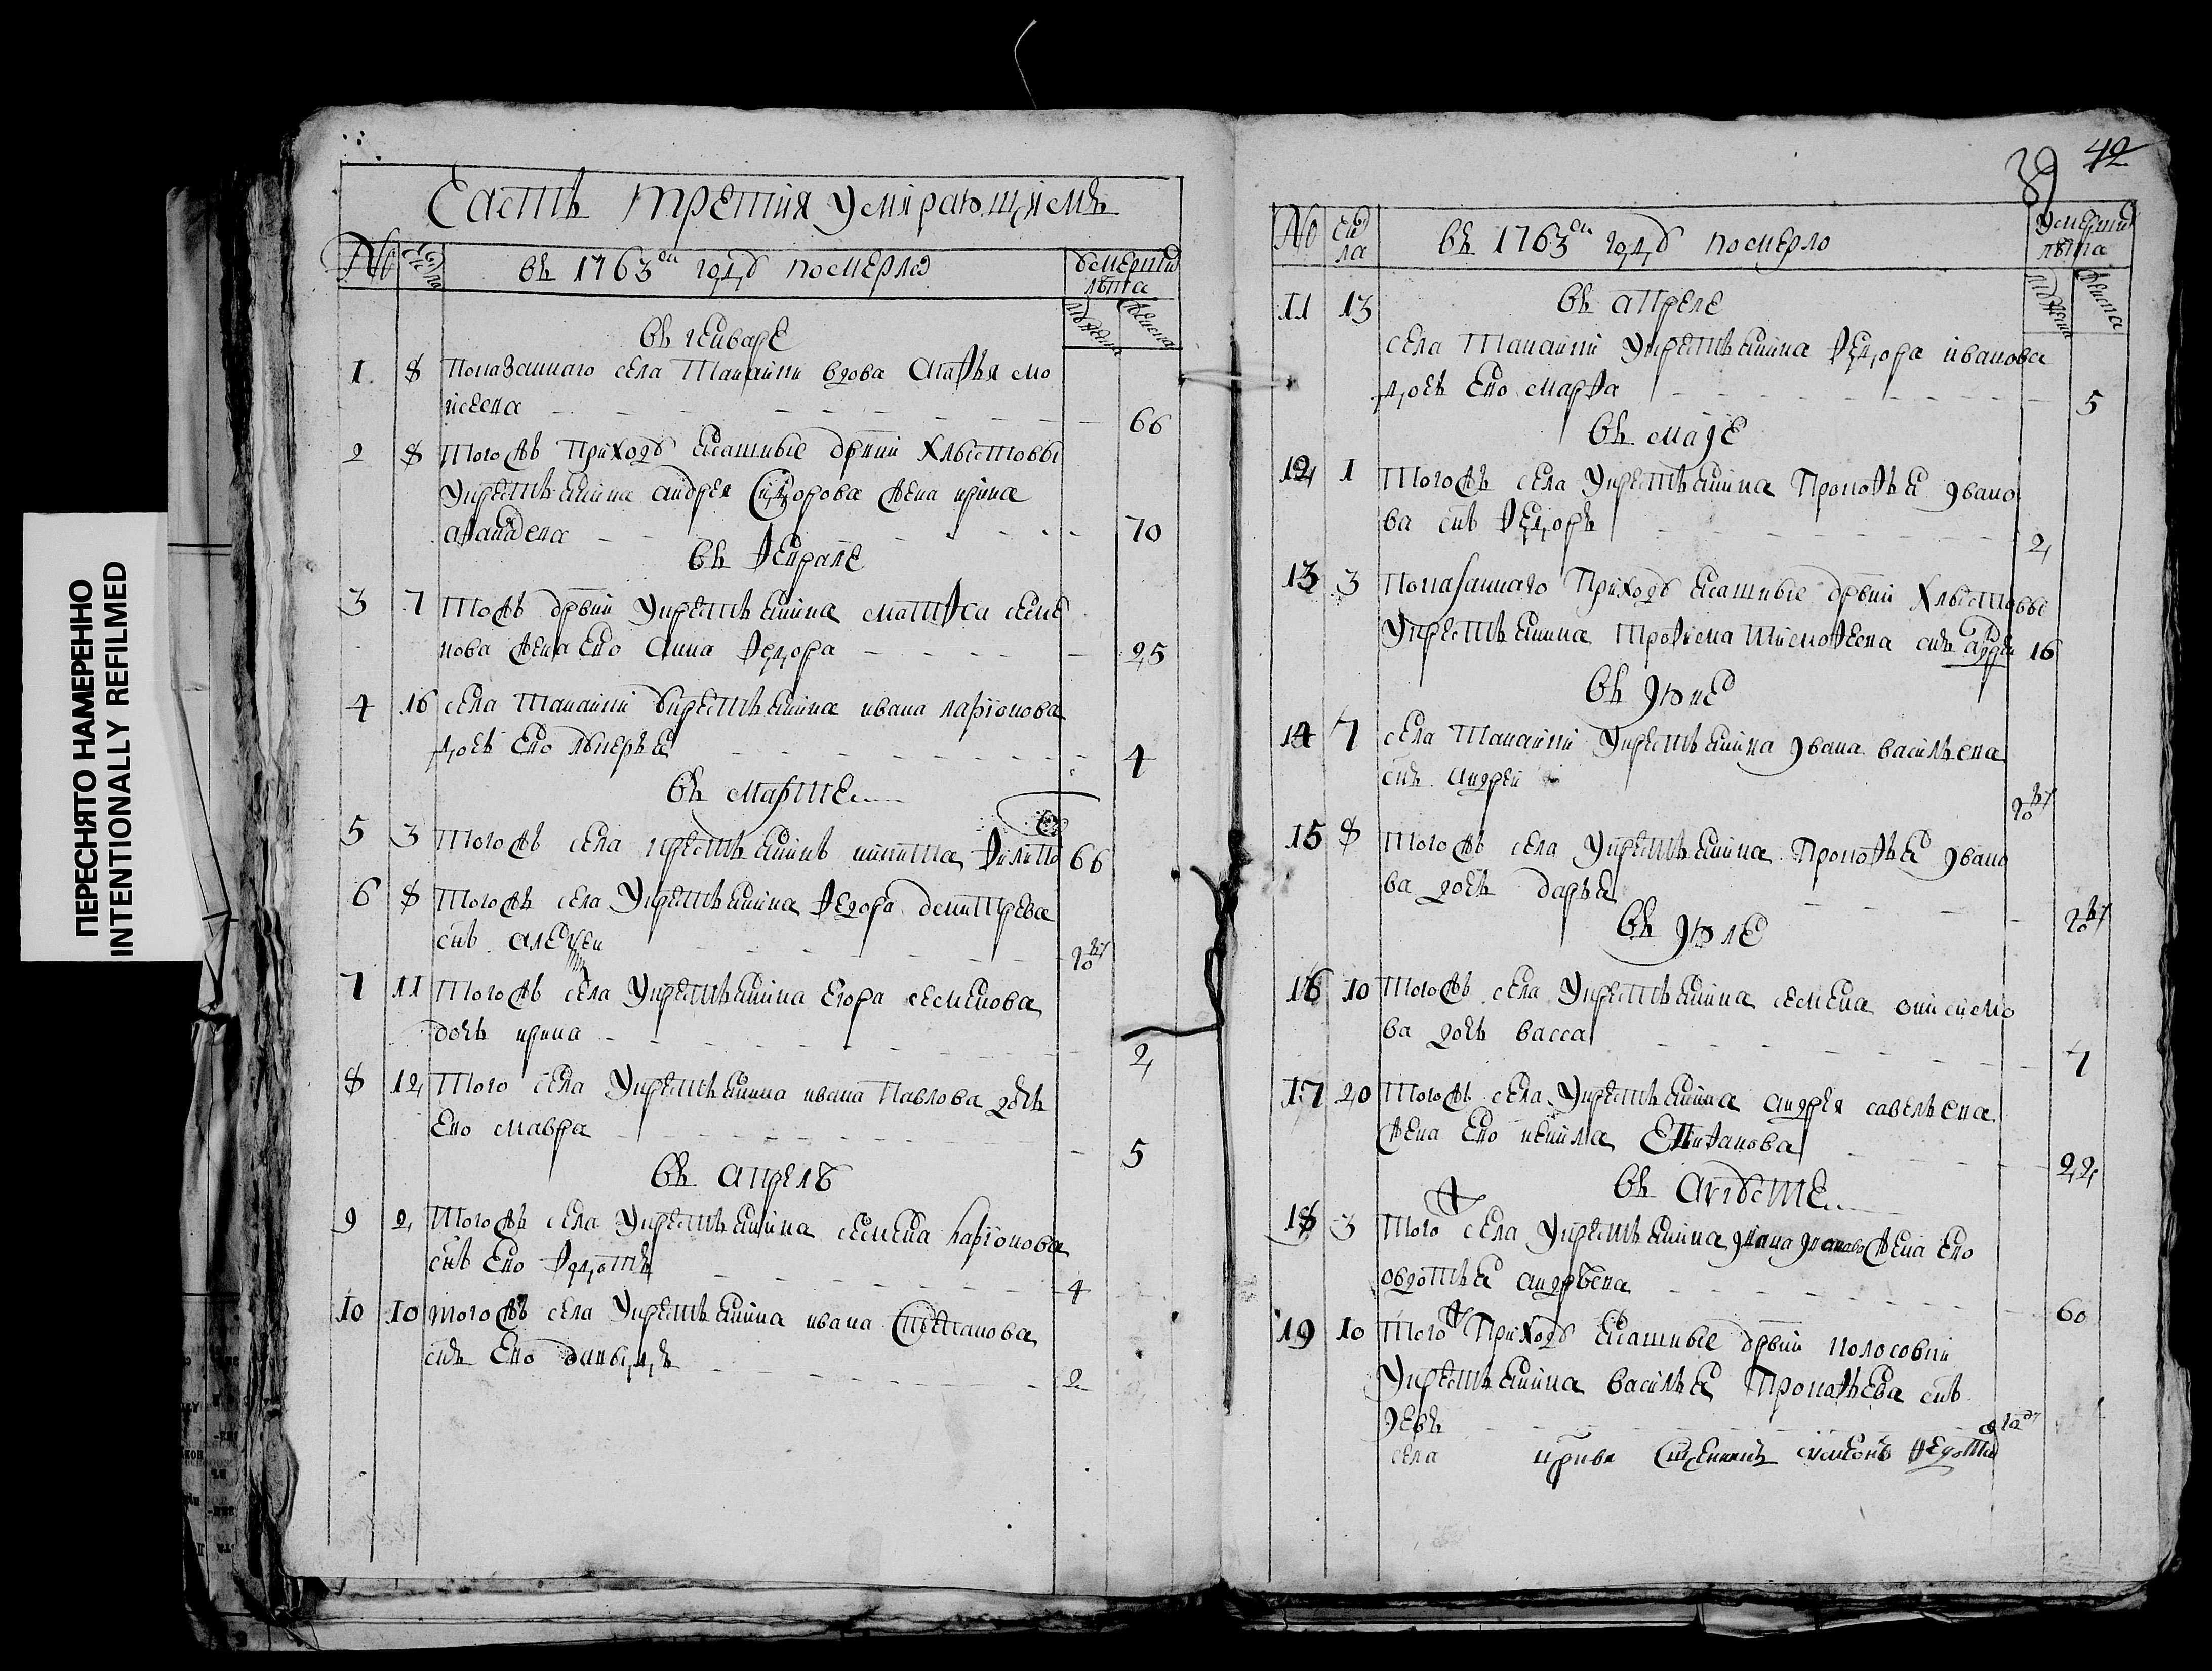 ПЕРЕСНЯТО НАМЕРЕННО
INTENTIONALLY REFILMED
Часть третия умирающимъ
№ числа въ 1763 ом году померло умерших лѣта
мужеска женска
въ генваре
1 8 Показаннаго села вдова мо
исеева 66
2 8 Тогожъ приходу ясашные дрвни Хлыстовы
Укрестьянина андрея Сидорова жена ирина
70
въ февралѣ
3 7 Тожъ дрвни Укрестьянина семе
нова жена ево анна федора 25
4 16 села укрестьянина ивана ларионова
дочь ево лукерья 4
въ марте
5 3 Тогожъ села крестьянинъ никита 66
6 8 Тогожъ села Укрестьянина федора дмитрева
снъ алексеи
7 11 Тогожъ села Укрестьянина Егора семенова
дочь ирина 2
8 12 Того села Укрестьянина ивана Павлова дочь
Ево мавра 5
въ апрелѣ
9 2 Тогожъ села Укрестьянина семена ларионова
снъ Ево федотъ 4
10 10 тогожъ села Укрестьянина ивана Степанова
снъ Ево давыдъ 2
39 42
№ числа въ 1763 ом году померло умерших лѣта
мужеска женска
11 13 въ апреле
села Укрестьянина федора иванова
дочь Ево марфа 5
въ маие
12 1 Тогожъ села Укрестьянина Прокофья ивано
ва снъ федоръ 2
13 3 Показаннаго Приходу ясашные дрвни Хлыстовы
Укрестьянина Трофима Тимофеева снъ 16
въ июне
14 7 села Укрестьянина ивана васильева
снъ андреи
15 8 Тогожъ села Укрестьянина Прокофья ивано
ва дочь дарья
въ июле
16 10 Тогожъ села Укрестьянина семена онисимо
ва дочь васса 4
17 20 Тогожъ села Укрестьянина андрея савельева
жена Ево Епифанова 22
въ августе
18 3 Того села Укрестьянина жена Ево
авдотья андрѣева 60
19 10 Тогож Приходу ясашные дрвни
Укрестьянина василья Прокофьева снъ
села цркви Сщенникъ